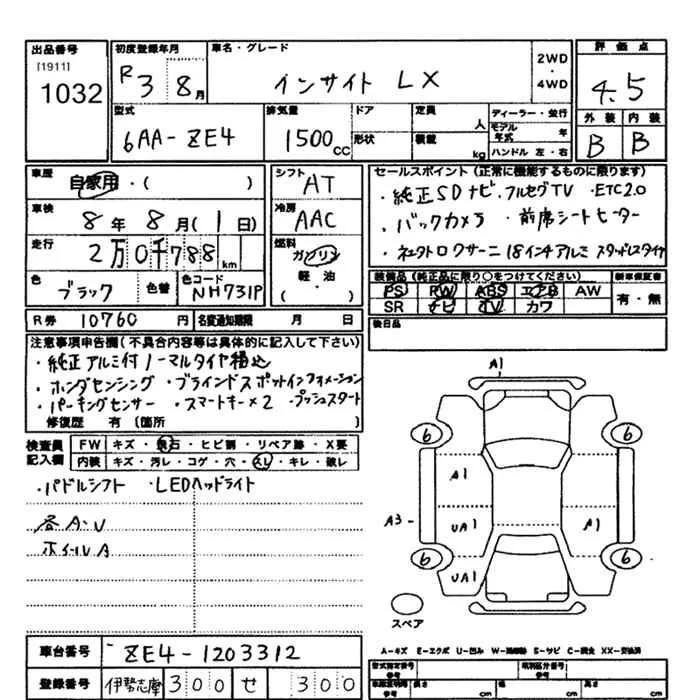 出品番号 初度登録年月 車名・グレード 2WD・4WD 評価点
[1911]
1032 R3 8月 インサイト LX 4.5
型式 排気量 ドア 定員 人 ディーラー・並行 外装 内装
6AA-ZE4 1500cc 形状 積載 kg モデル年式 年 B B
ハンドル 左・右
車歴 自家用・( ) シフト AT
車検 8年8月(1日) 冷房 AAC
走行 2万0千788km 燃料 ガソリン 軽油 ( )
色 ブラック 色替 色コード NH731P
R券 10760円 名変通知期限 月 日
セールスポイント(正常に機能するものに限ります)
・純正SDナビ・フルセグTV ・ETC2.0
・バックカメラ ・前席シートヒーター
18インチアルミ スタッドレスタイヤ
装備品(純正品に限り○をつけてください) 新車保証書
PS PW ABS エアB AW 有・無
SR ナビ TV カワ
後日品
注意事項申告欄(不具合内容等は具体的に記入して下さい)
・純正アルミ付ノーマルタイヤ積込
・ホンダセンシング ・ブラインドスポットインフォメーション
・パーキングセンサー ・スマートキー×2 ・プッシュスタート
修復歴 有(箇所 )
検査員記入欄 FW キズ・飛石・ヒビ割・リペア跡・X要
内装 キズ・汚レ・コゲ・穴・スレ・キレ・破レ
・パドルシフト ・LEDヘッドライト
各A・U
ホイルA
A1
6 6
A1
A3 UA1 A1
6 6
UA1
スペア
A-キズ E-エクボ U-凹み W-補修跡 S-サビ C-腐食 XX-交換済
車台番号 ZE4-1203312
登録番号 伊勢志摩 300 せ 300
型式指定番号 参考 類別区分番号 参考
長さ cm 幅 cm 高さ cm